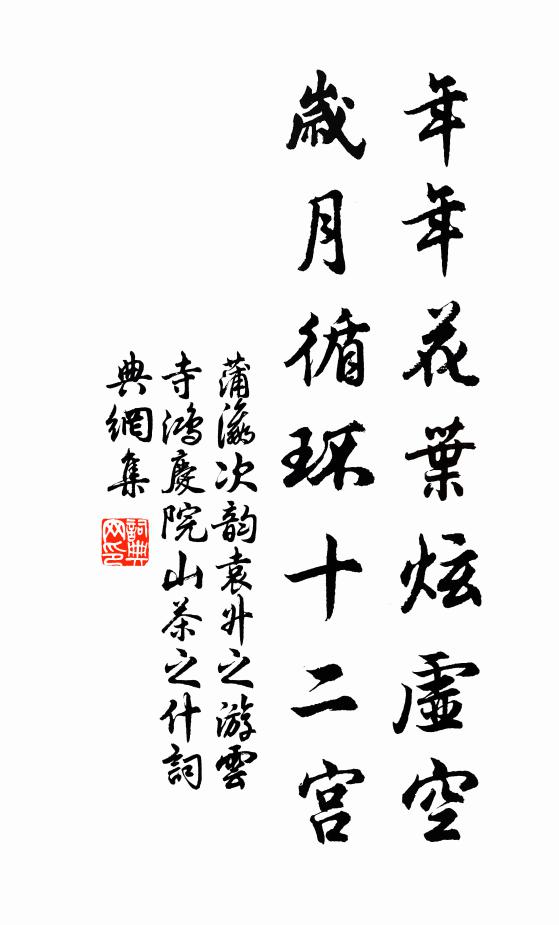 年年花葉炫虛空
歲月循環十二宮
蒲瀛次韵袁升之游雲
寺鴻慶院山茶之什詞
典網集
詞典網印